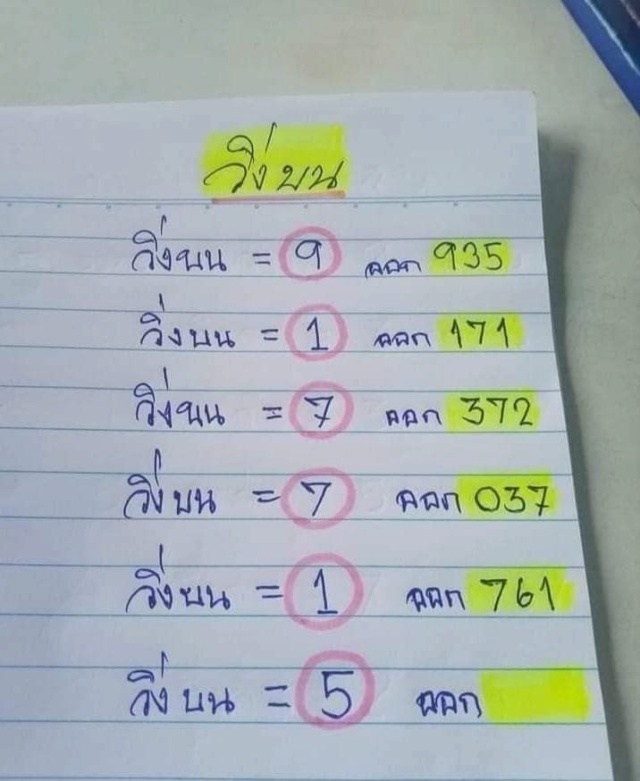 วิ่งบน
วิ่งบน = 9 ออก 935
วิ่งบน = 1 ออก 171
วิ่งบน = 7 ออก 372
วิ่งบน = 7 ออก 037
วิ่งบน = 1 ออก 761
วิ่งบน = 5 ออก